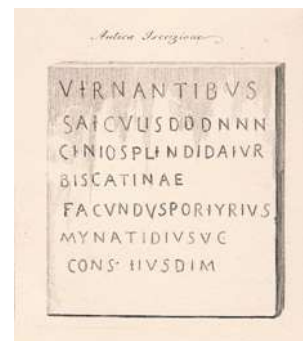 Antica Iscrizione
VIRNANTIBVS
SAICVLISDDDNNN
CINIOSPLINDIDAIVR
BISCATINAE
FACVNDVSPORIYRIVS
MYNATIDIVSVC
CONS· IIVSDIM